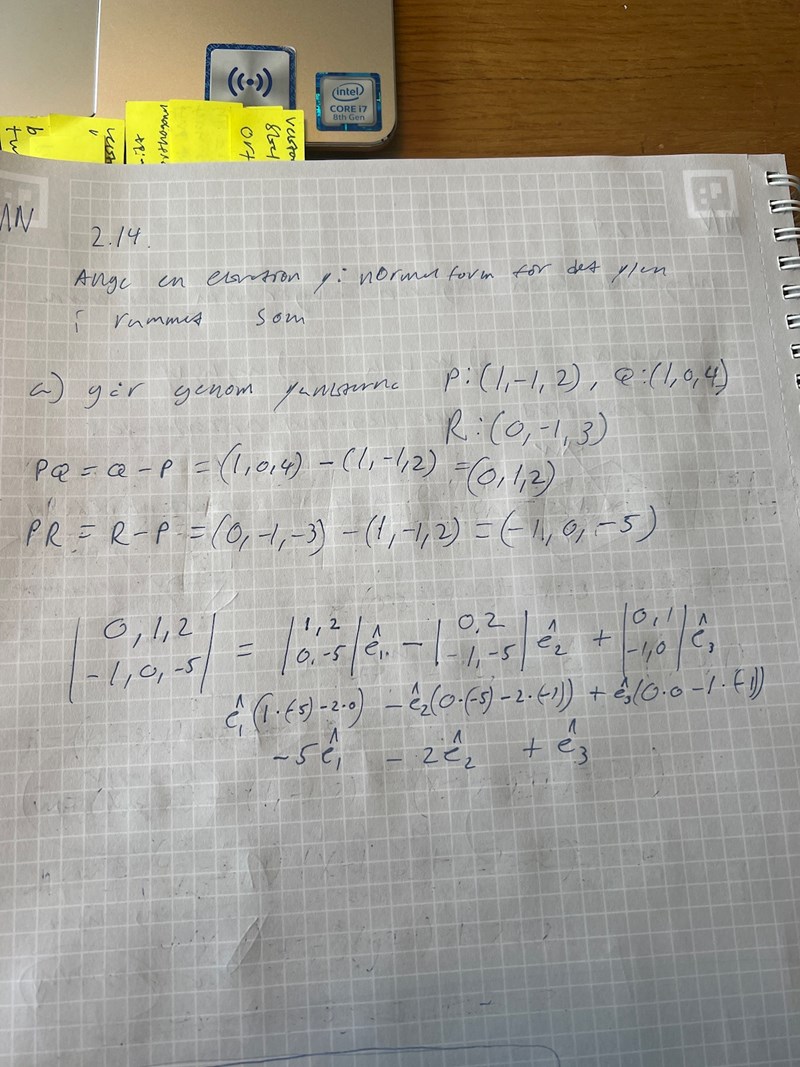 intel
CORE i7
8th Gen
MN
2.14.
Ange en ekvation på normalform för det plan
i rummet som
a) går genom punkterna P:(1,-1,2), Q:(1,0,4)
R:(0,-1,3)
PQ = Q-P = (1,0,4) - (1,-1,2) = (0,1,2)
PR = R-P = (0,-1,-3) - (1,-1,2) = (-1,0,-5)
|0,1,2 / -1,0,-5| = |1,2 / 0,-5| ê₁ - |0,2 / -1,-5| ê₂ + |0,1 / -1,0| ê₃
ê₁(1·(-5)-2·0) - ê₂(0·(-5)-2·(-1)) + ê₃(0·0-1·(-1))
-5ê₁ - 2ê₂ + ê₃